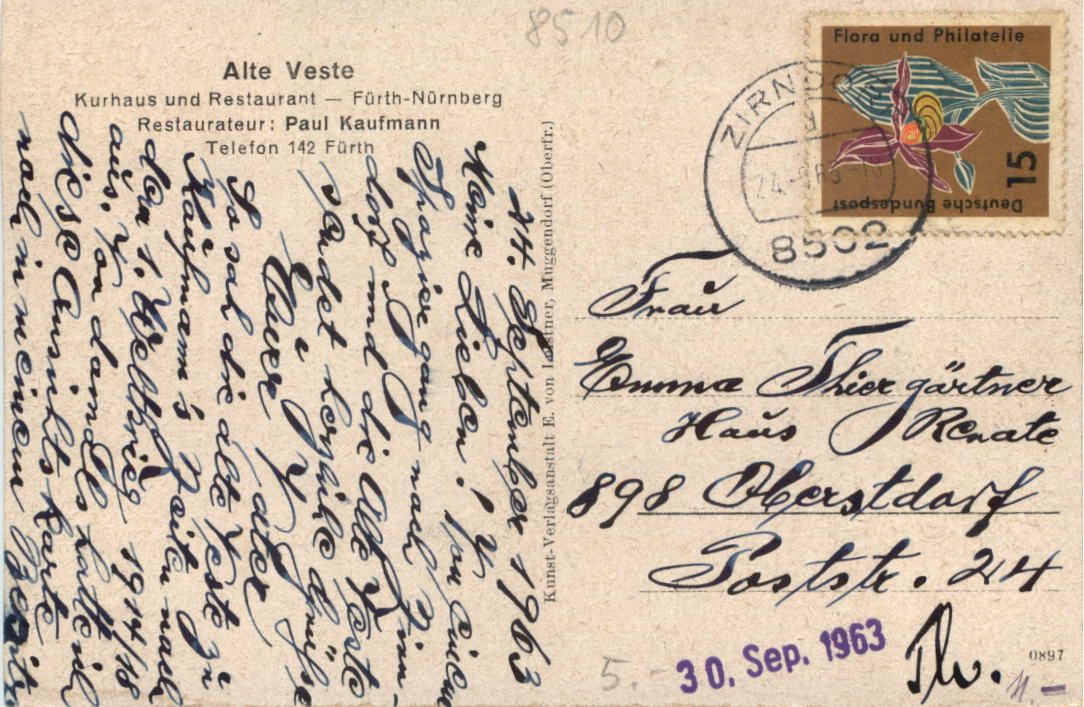 8510
Alte Veste
Kurhaus und Restaurant — Fürth-Nürnberg
Restaurateur: Paul Kaufmann
Telefon 142 Fürth
Flora und Philatelie
15
Deutsche Bundespost
ZIRNDORF
8502
24. September 1963
Meine Lieben! Von einem
Spaziergang nach Zirn-
dorf und die Alte Veste
sendet herzliche Grüße
Euer Vater
So sah die alte Veste zu
Kaufmann's Zeiten nach
dem 1. Weltkrieg 1914/18
aus. Von damals hatte ich
diese Ansichtskarte
noch in meinem Besitz
Kunst-Verlagsanstalt E. von Leistner, Muggendorf (Oberfr.)
Frau
Emma Thiergärtner
Haus Renate
898 Oberstdorf
Poststr. 24
30. Sep. 1963
0897
5.-